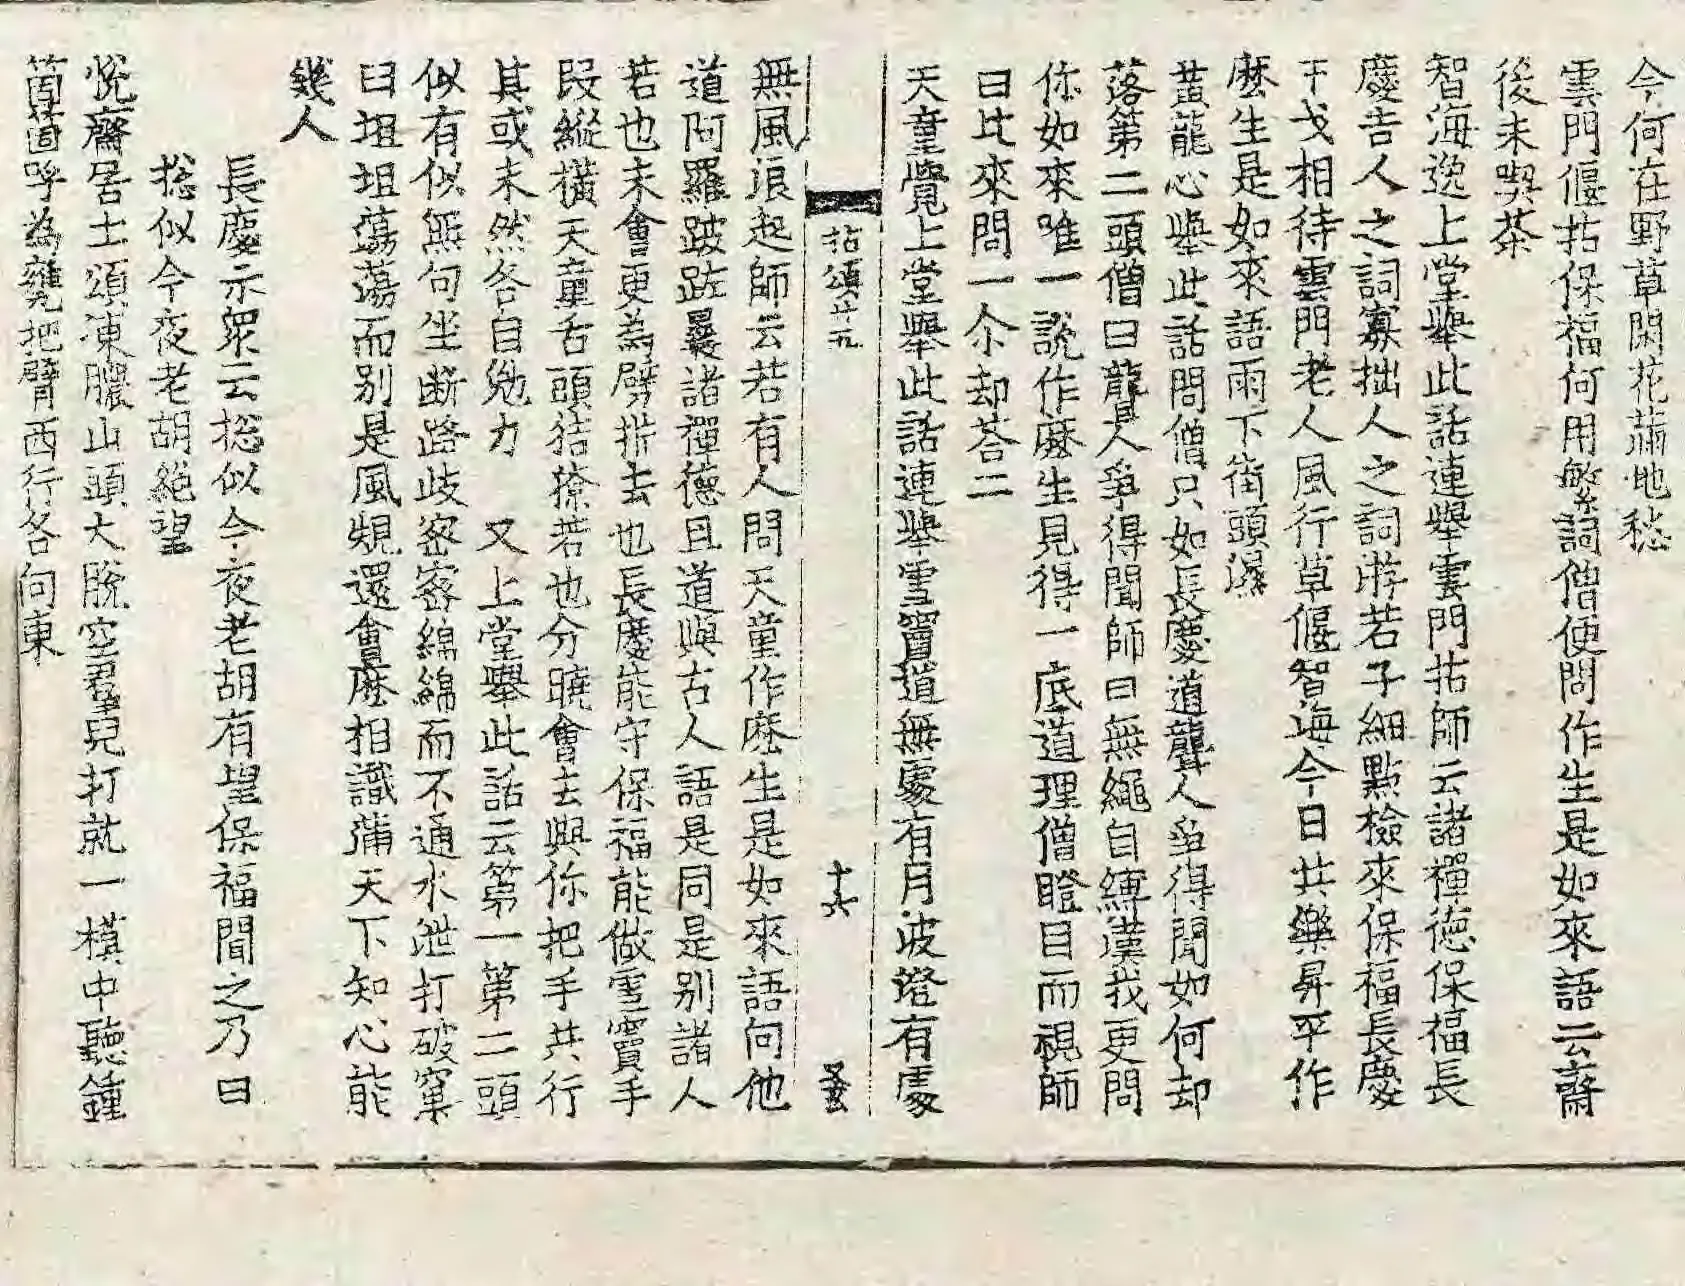 今何在野草閑花滿地愁
雲門偃拈保福何用繁詞僧便問作生是如來語云齋
後未喫茶
智海逸上堂擧此話連擧雲門拈師云諸禪德保福長
慶吉人之詞寡拙人之詞游若子細點檢來保福長慶
干戈相待雲門老人風行草偃智海今日共樂昇平作
麽生是如來語雨下街頭濕
黃龍心擧此話問僧只如長慶道聾人爭得聞如何却
落第二頭僧曰聾人爭得聞師曰無繩自縛漢我更問
你如來唯一說作麽生見得一底道理僧瞪目而視師
曰比來問一介却荅二
天童覺上堂擧此話連擧雪竇道無處有月波澄有處
拈頌廿九
十六
無風浪起師云若有人問天童作麽生是如來語向他
道阿羅跛跛曩諸禪德且道與古人語是同是別諸人
若也未會更為劈析去也長慶能守保福能做雪竇手
段縱橫天童舌頭狤獠若也分曉會去與你把手共行
其或未然各自勉力 又上堂擧此話云第一第二頭
似有似無句坐斷路歧密密綿綿而不通水泄打破窠
臼坦坦蕩蕩而別是風規還會麽相識滿天下知心能
幾人
長慶示衆云揔似今夜老胡有望保福聞之乃曰
揔似今夜老胡絶望
悅齋居士頌凍膿山頭大脫空羣兒打就一模中聽鍾
箇箇呼為甕把臂西行各向東